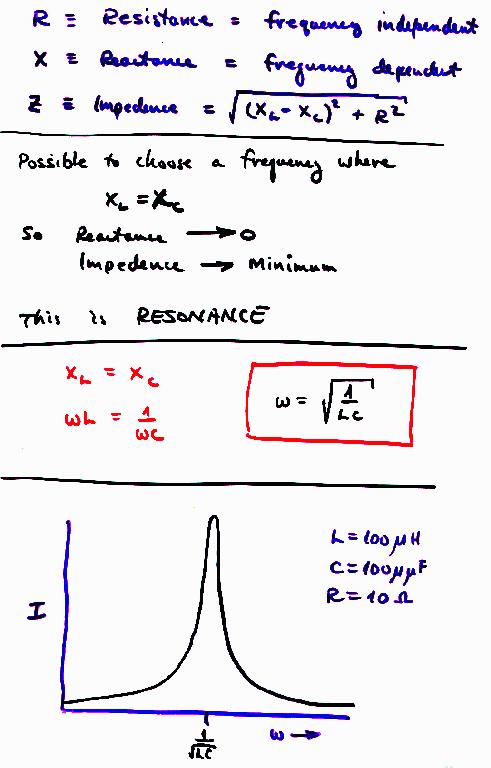 R ≡ Resistance = frequency independent
X ≡ Reactance = frequency dependent
Z ≡ Impedence = √((X_L - X_C)² + R²)
Possible to choose a frequency where
X_L = X_C
So Reactance → 0
Impedence → Minimum
This is RESONANCE
X_L = X_C
ωL = 1/ωC
ω = √(1/LC)
L = 100 μH
C = 100 μμF
R = 10 Ω
I
1/√LC
ω →